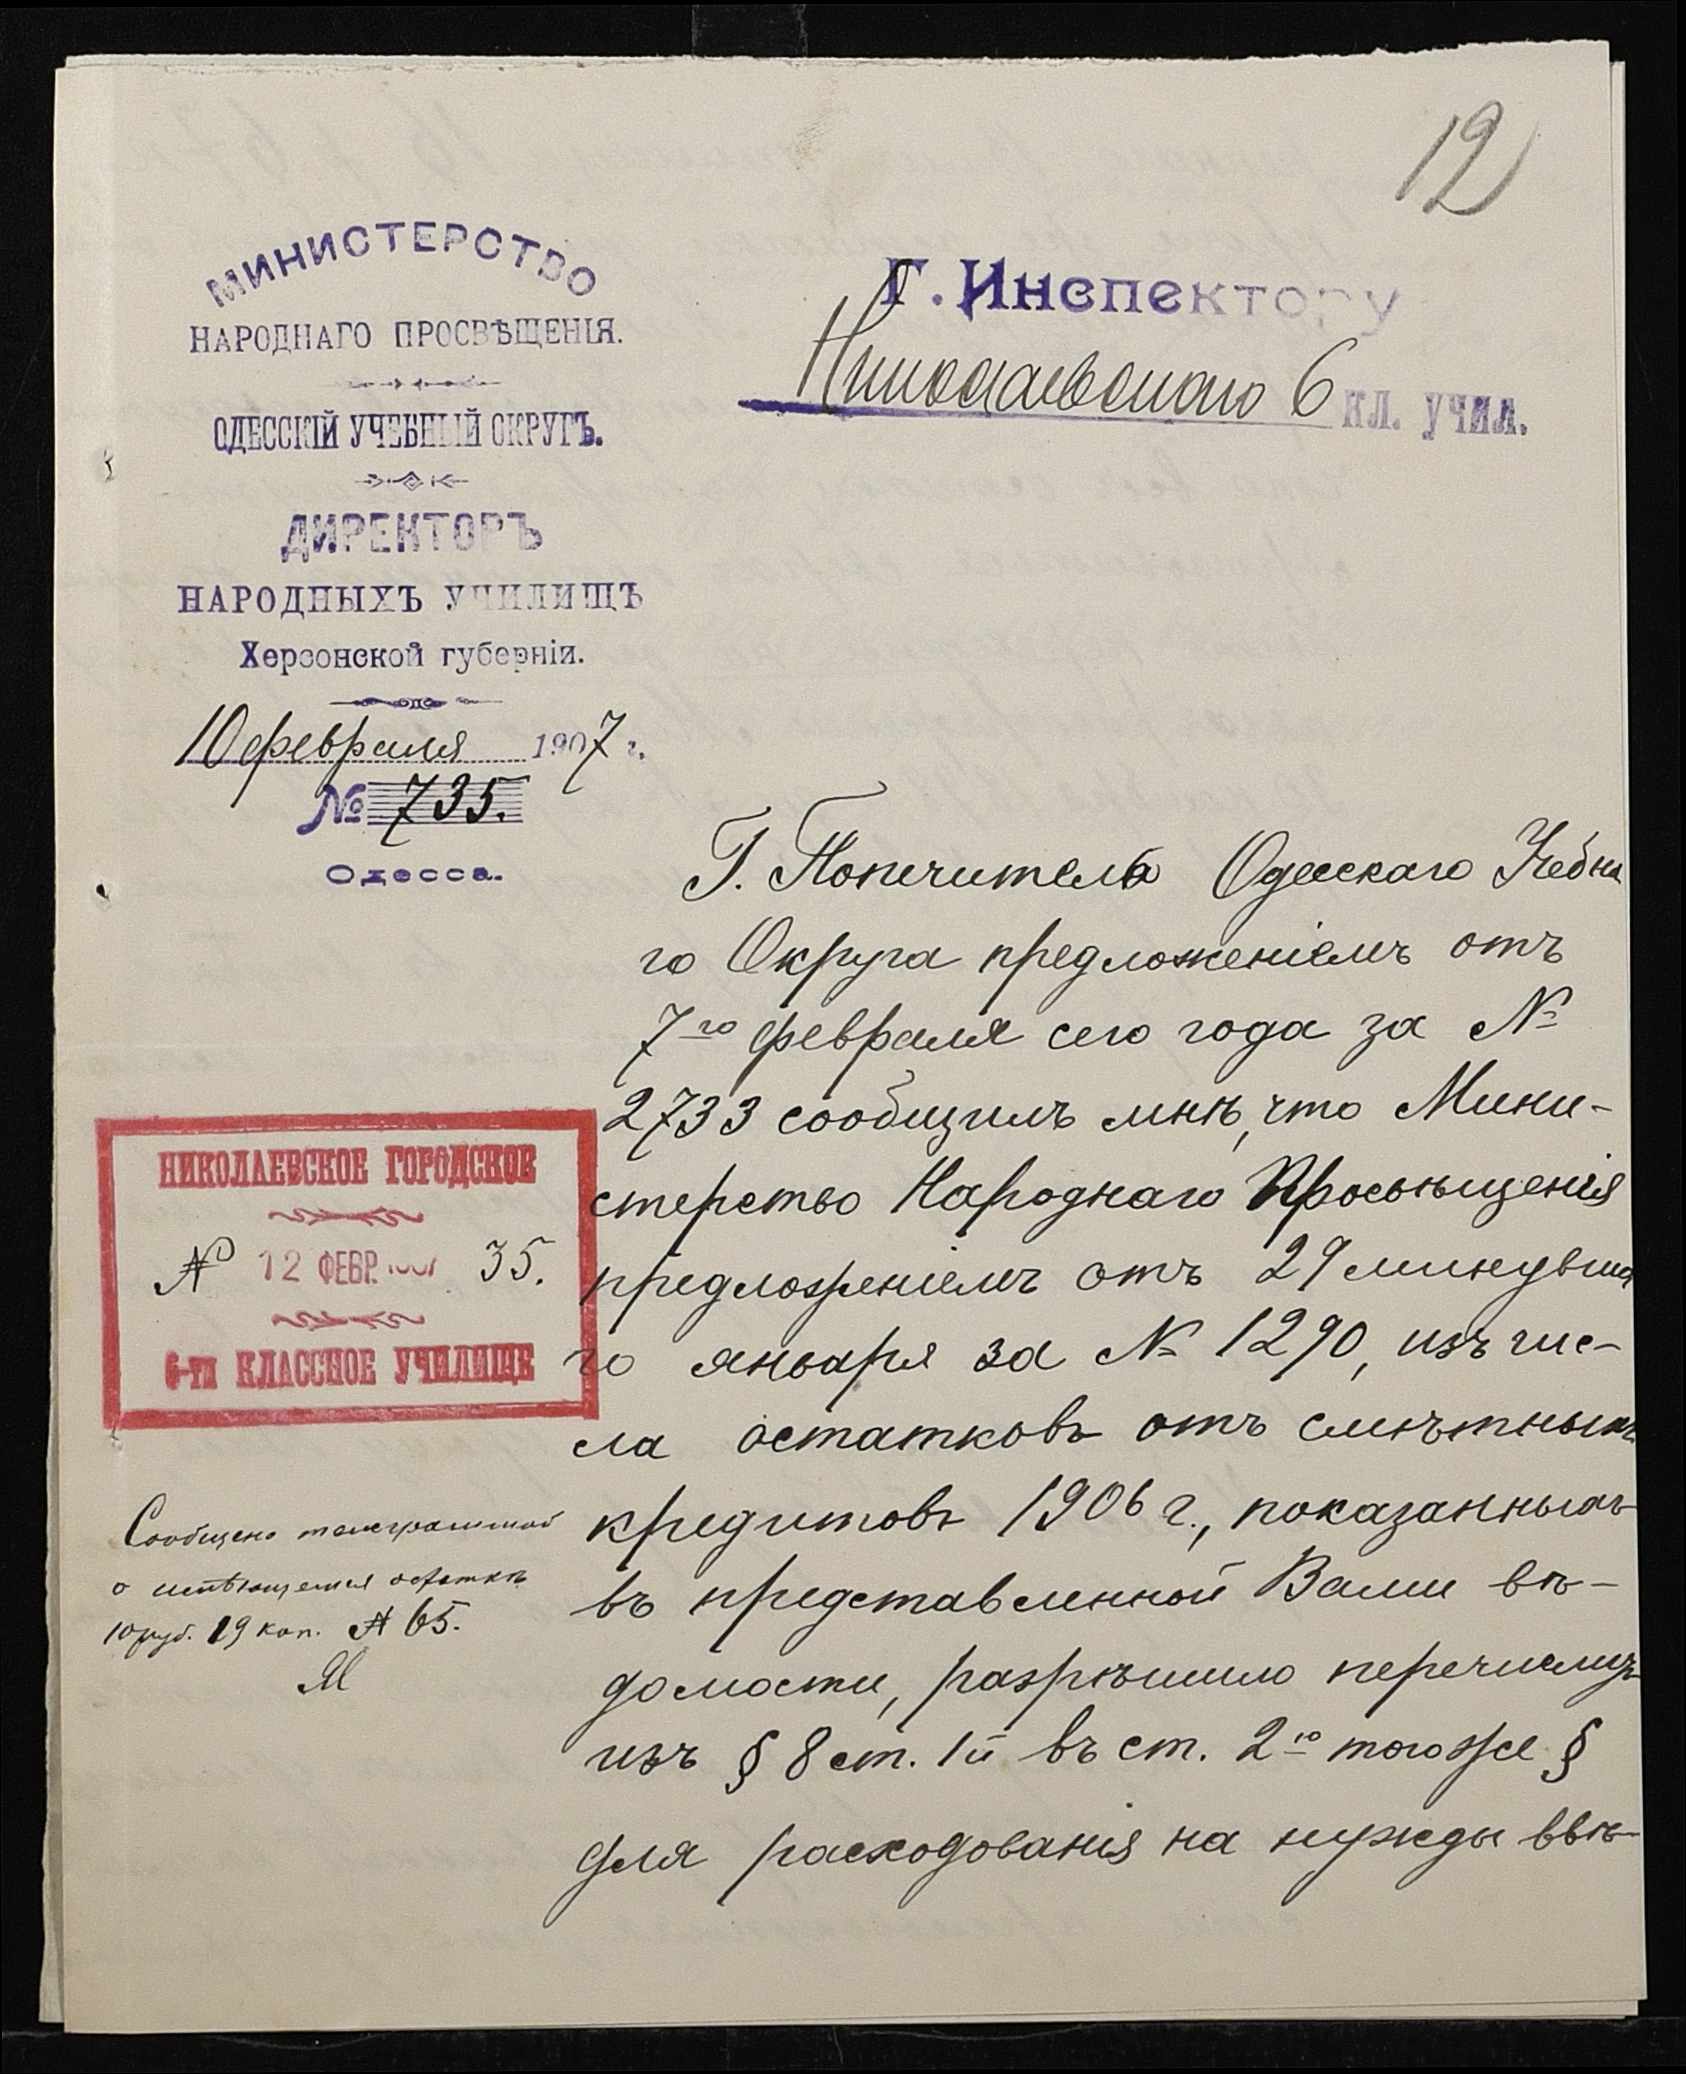 12
МИНИСТЕРСТВО
НАРОДНАГО ПРОСВѢЩЕНІЯ.
ОДЕССКІЙ УЧЕБНЫЙ ОКРУГЪ.
ДИРЕКТОРЪ
НАРОДНЫХЪ УЧИЛИЩЪ
Херсонской губерніи.
10 февраля 1907 г.
№ 735.
Одесса.
Г. Инспектору
Николаевскаго 6 КЛ. УЧИЛ.
Г. Попечитель Одесскаго Учебна
го Округа предложеніемъ отъ
7го февраля сего года за №
2733 сообщилъ мнѣ, что Мини-
стерство Народнаго Просвѣщенія
предложеніемъ отъ 29 минувша
го января за № 1290, изъ чис-
ла остатковъ отъ смѣтныхъ
кредитовъ 1906 г., показанныхъ
въ представленной Вами вѣ-
домости, разрѣшило перечислить
изъ § 8 ст. 1й въ ст. 2ю тогоже §
для расходованія на нужды ввѣ-
НИКОЛАЕВСКОЕ ГОРОДСКОЕ
№ 12 ФЕВР. 1907 35.
6-ти КЛАССНОЕ УЧИЛИЩЕ
Сообщено телеграммой
о имѣющемся остаткѣ
10 руб. 19 коп. № 65.